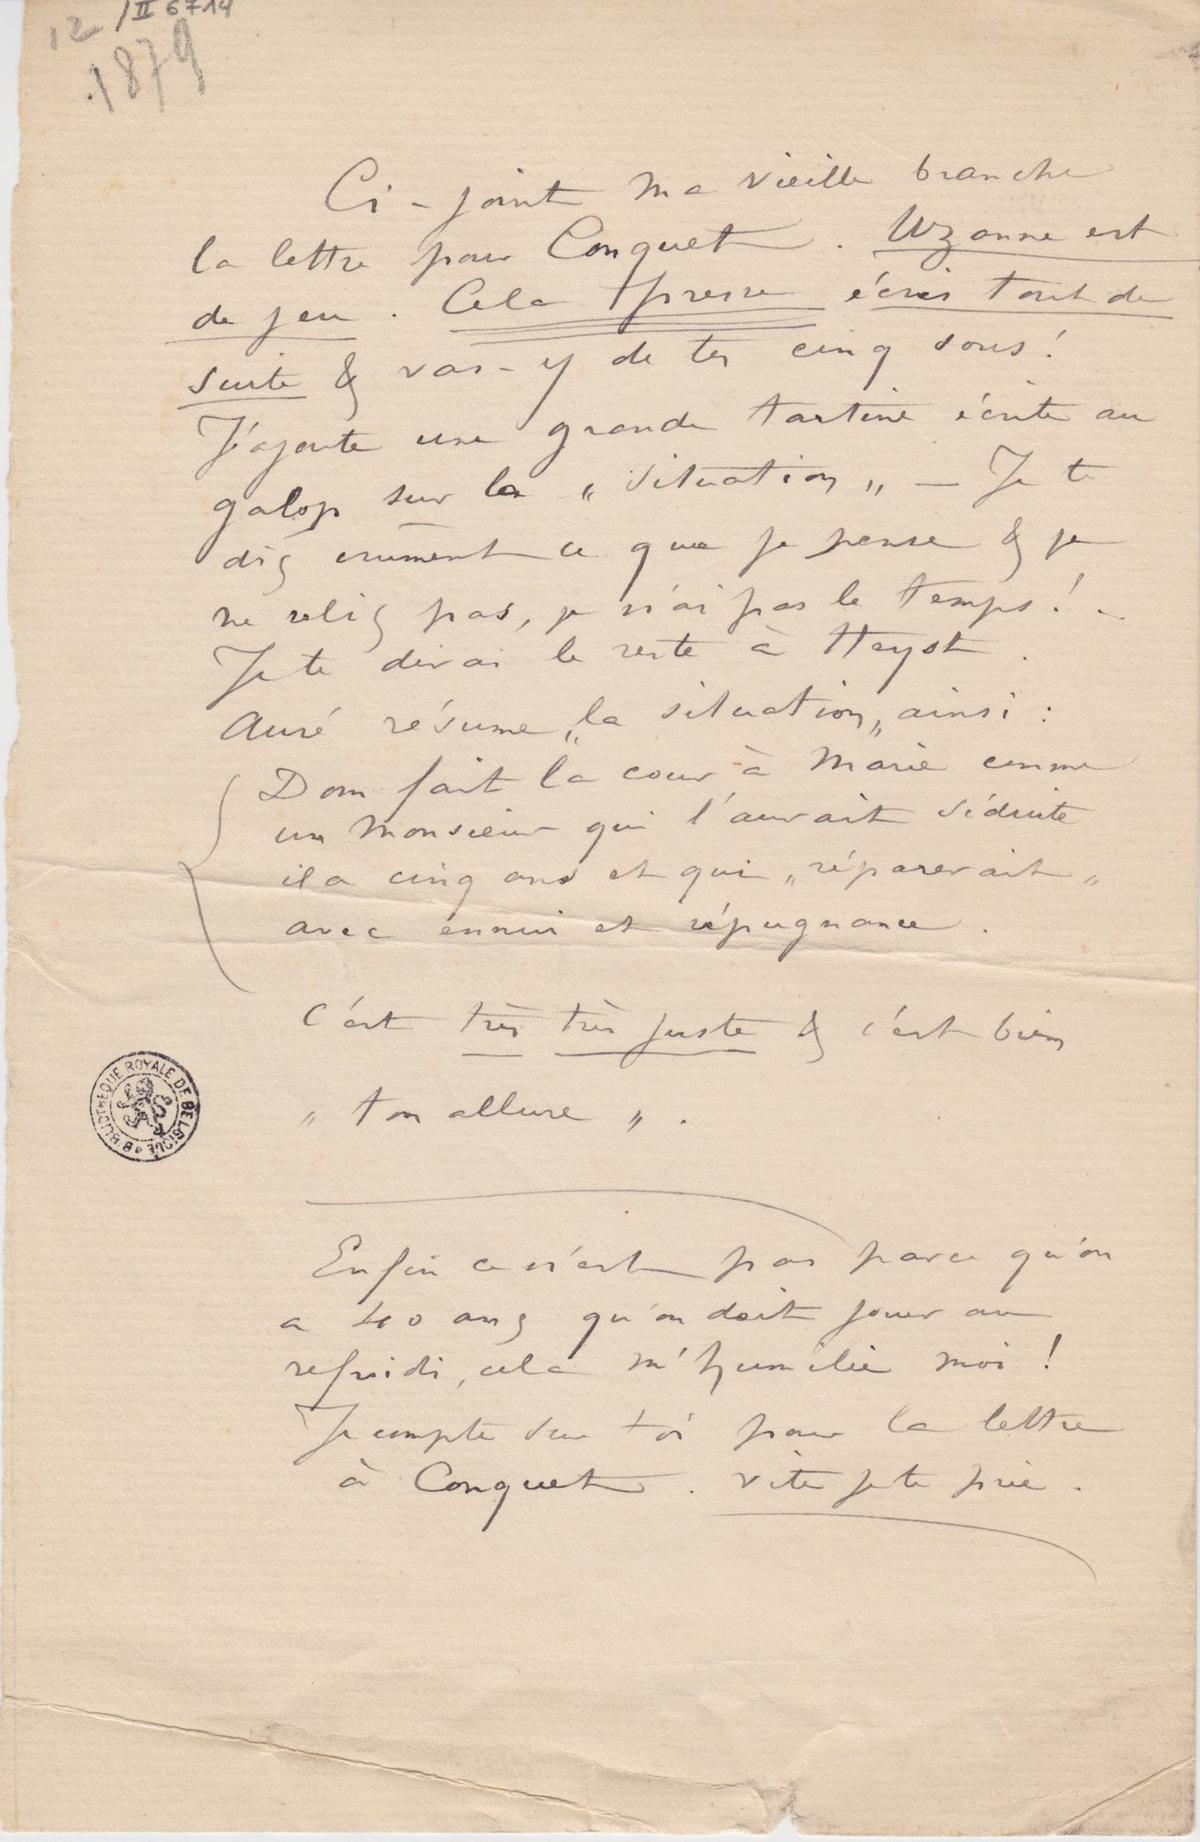 12 /II 6714
1879
Ci-joint ma vieille branche
la lettre pour Conquet. Uzanne est
de jeu. Cela presse écris tout de
suite & vas-y de tes cinq sous!
J'ajoute une grande tartine écrite au
galop sur la „situation„ — Je te
dis crument ce que je pense & je
ne relis pas, je n'ai pas le temps! -
Je te dirai le reste à Heyst.
Auré résume „la situation„ ainsi :
Dom fait la cour à Marie comme
un Monsieur qui l'aurait séduite
il a cinq ans et qui „réparerait„
avec ennui et répugnance.
C'est très très juste & c'est bien
„ton allure„.
Enfin ce n'est pas parce qu'on
a 40 ans qu'on doit jouer au
refroidi, cela m'humilie moi !
Je compte sur toi pour la lettre
à Conquet. vite je te prie.
BIBLIOTHÈQUE ROYALE DE BELGIQUE